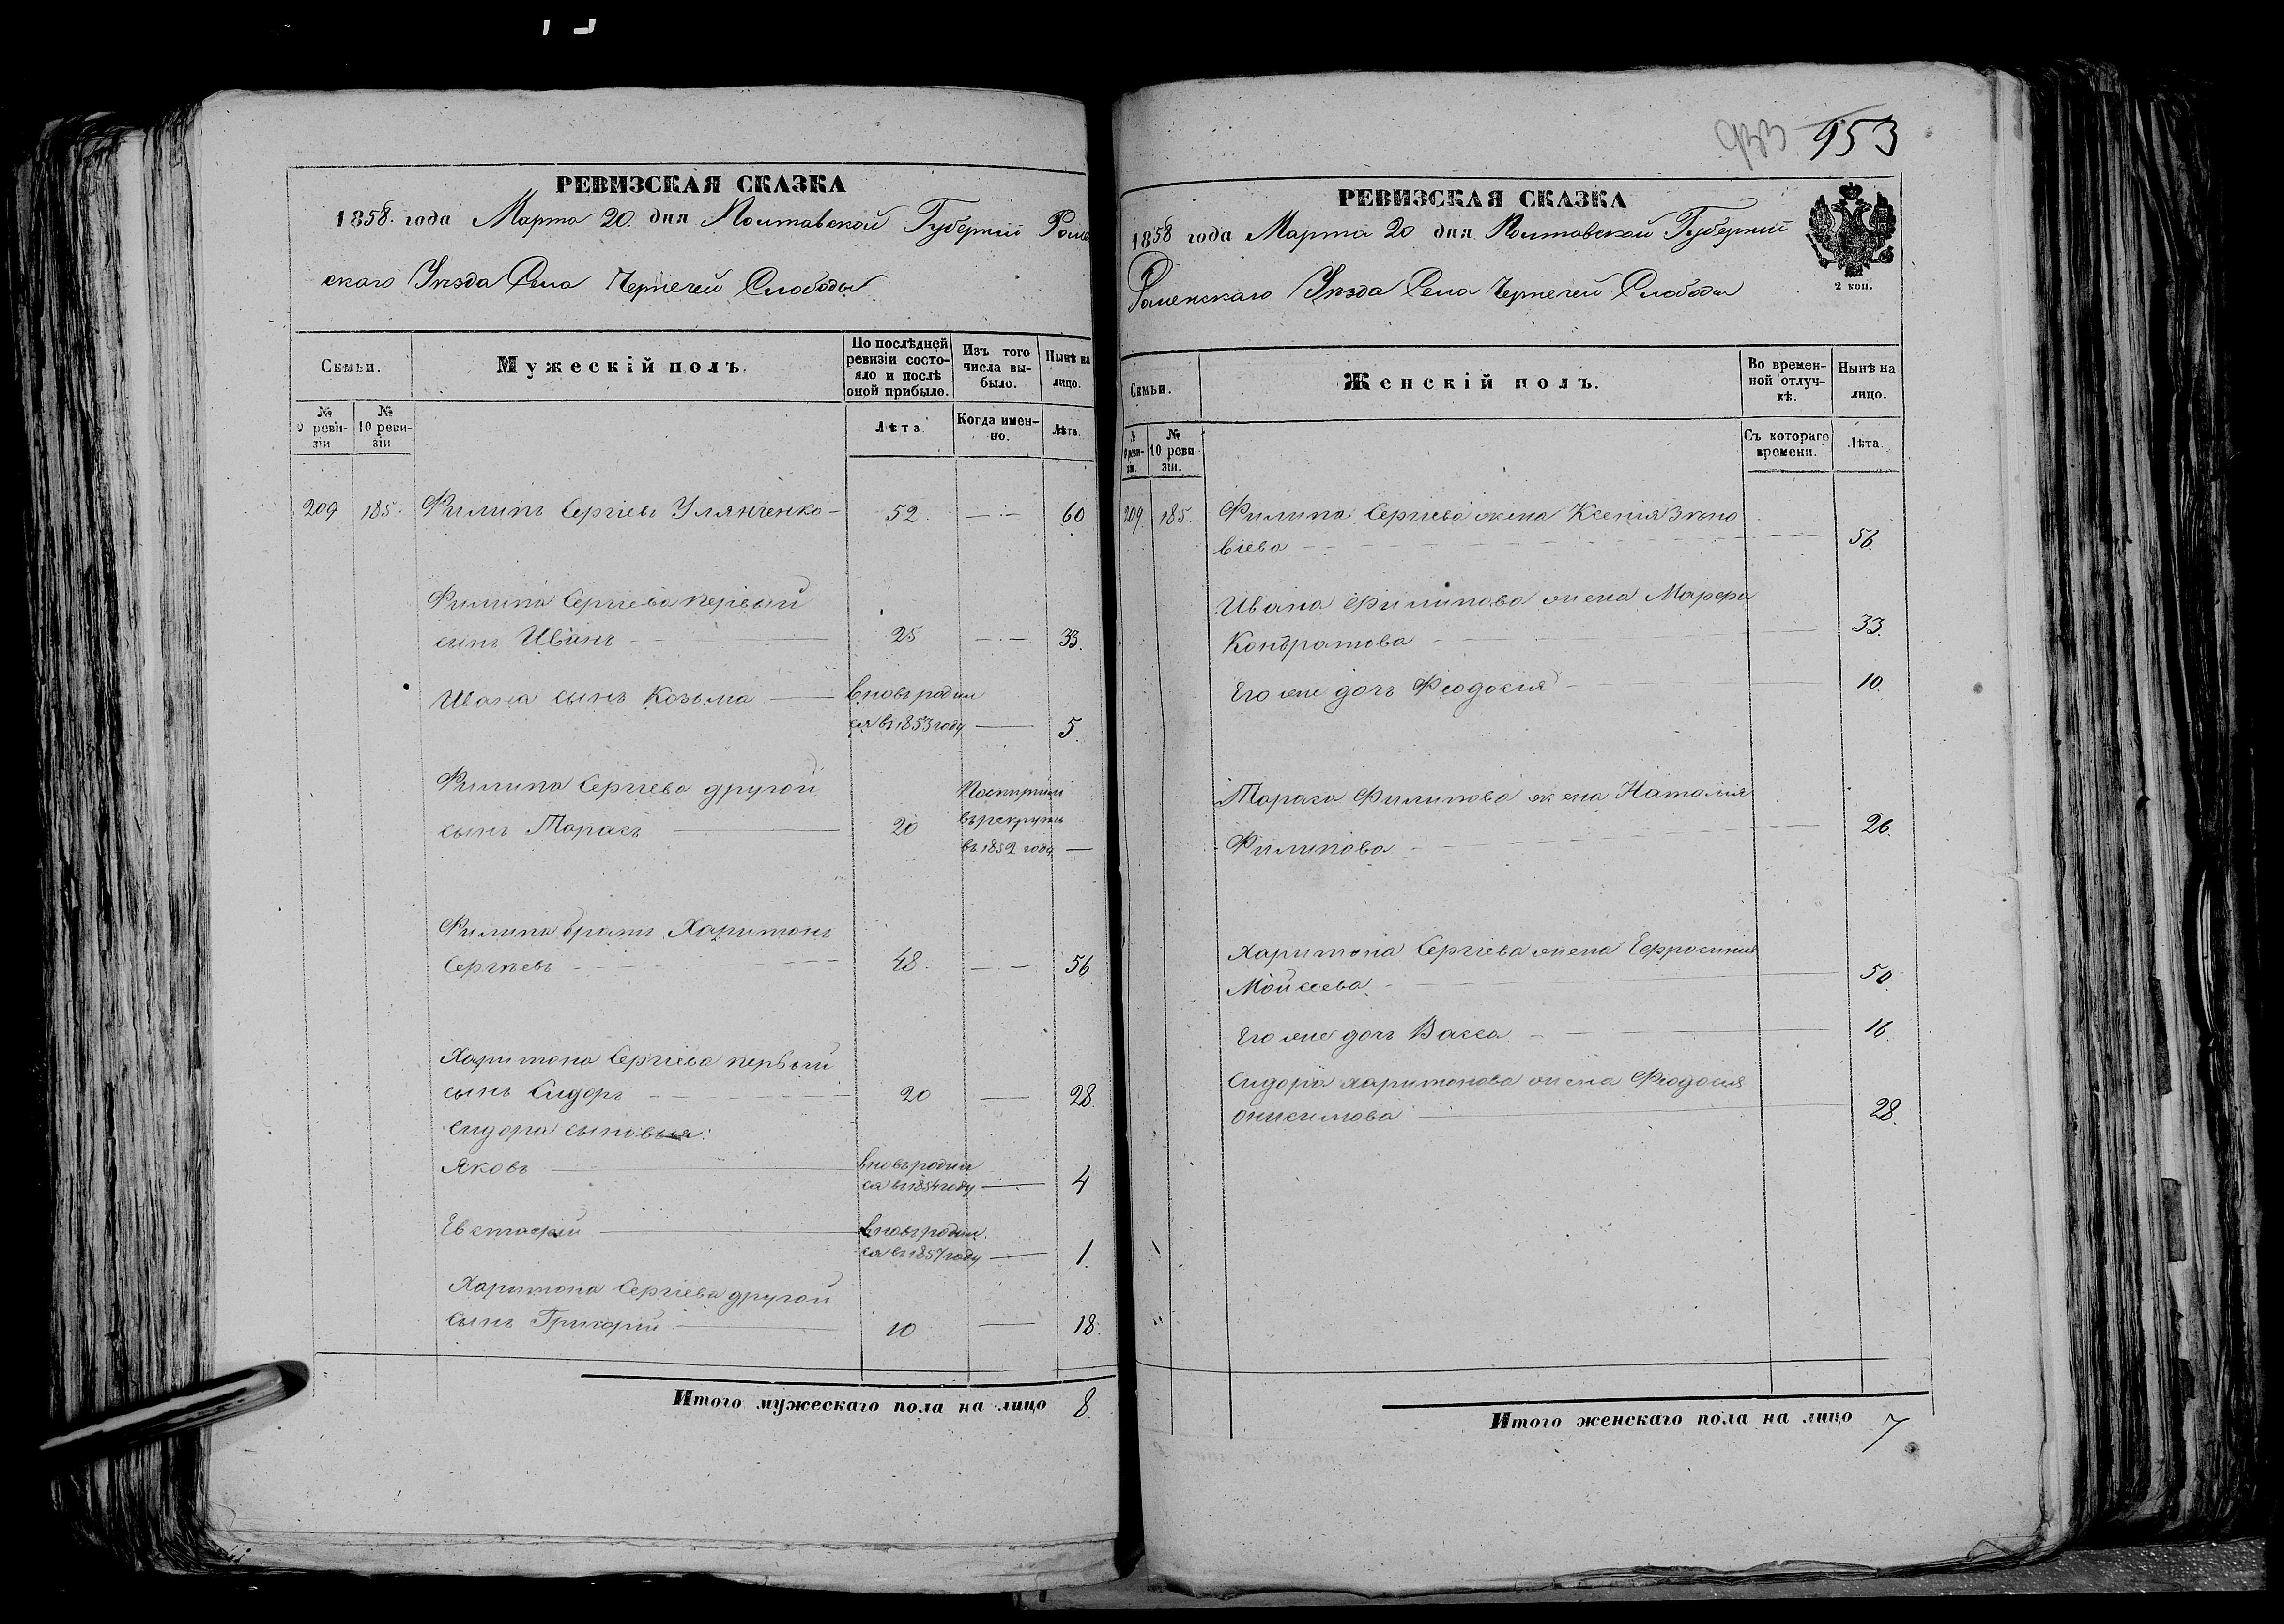 РЕВИЗСКАЯ СКАЗКА
1858. года Марта 20. дня Полтавской Губерніи Роме
скаго Уѣзда Села Чернечей Слободы
Семьи.
Мужескій полъ.
По послѣдней ревизіи состо-
яло и послѣ оной прибыло.
Изъ того числа вы-
было.
Нынѣ на лицо.
№ 9 реви-
зіи
№ 10 реви-
зіи
Лѣта
Когда имен-
но.
Лѣта.
209 185. Филипъ Сергіевъ Улянченко 52. 60
Филипа Сергіева первый
сынъ Иванъ 25 33.
Ивана сынъ Козьма вновь родил
ся въ 1853 году 5.
Филипа Сергіева другой
сынъ Тарасъ 20
въ рекруты
въ 1852 году
Филипа братъ Харитонъ
Сергѣевъ 48. 56
Харитона Сергіева первый
сынъ Сидоръ 20 28.
Сидора сыновья:
Яковъ вновь родил
ся въ 1854 году 4
Евстафій вновь родил.
ся въ 1857 году 1.
Харитона Сергіева другой
сынъ Григорій 10 18.
Итого мужескаго пола на лицо 8.
933 953
РЕВИЗСКАЯ СКАЗКА
1858 года Марта 20 дня Полтавской Губерніи
Роменскаго Уѣзда Села Чернечей Слободы
2 коп.
Семьи.
Женскій полъ.
Во времен-
ной отлуч-
кѣ.
Нынѣ на лицо.
№ 9 реви-
зіи.
№ 10 реви
зіи.
Съ котораго времени.
Лѣта.
209. 185. Филипа Сергіева жена Ксенія Зѣно
віева 56.
Ивана Филипова жена Марфа
Кондратова 33.
Его же дочь Феодосія 10.
Тараса Филипова жена Наталія
Филипова 26.
Харитона Сергіева жена Ефросинія
Мойсеева 50.
Его же дочь Васса 16.
Сидора Харитонова жена Феодосія
Онисимова 28.
Итого женскаго пола на лицо 7